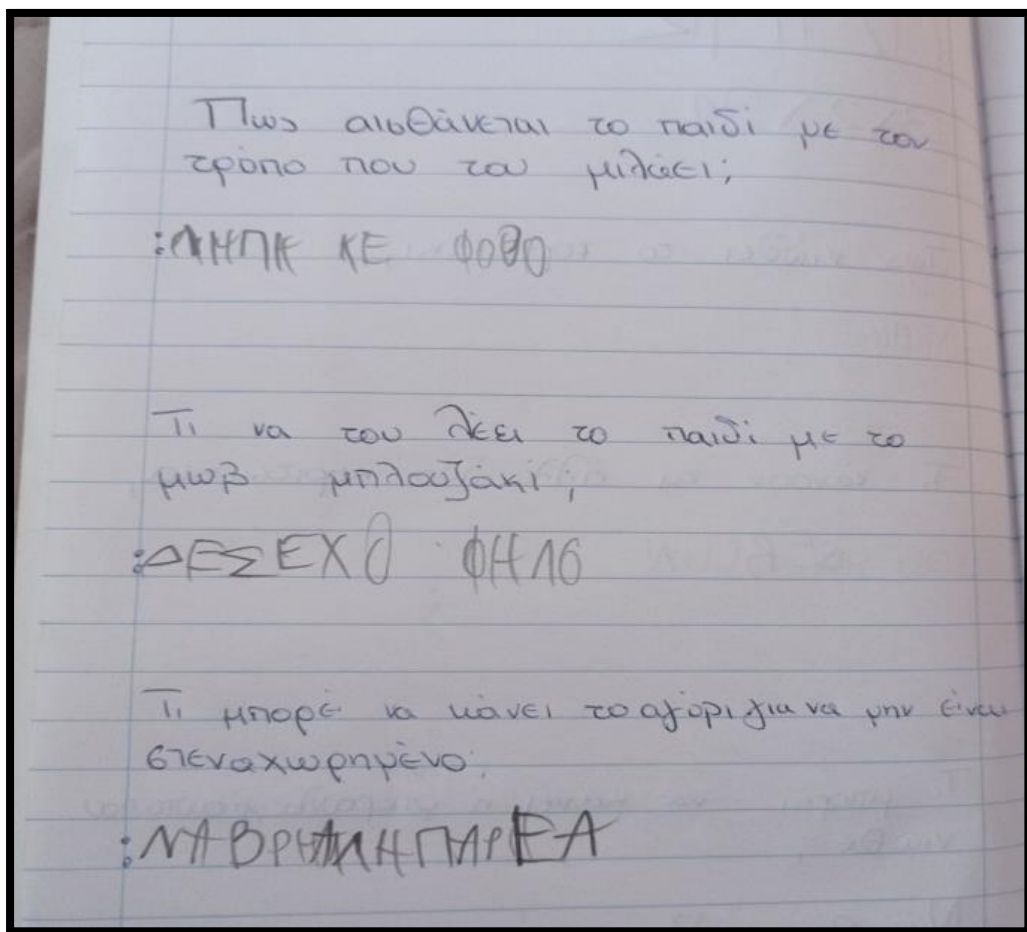 Πως αισθάνεται το παιδί με τον
τρόπο που του μιλάει;
:ΛΗΠΗ ΚΕ ΦΟΒΟ
Τι να του λέει το παιδί με το
μωβ μπλουζάκι;
:ΔΕΣΕΧΟ ΦΗΛΟ
Τι μπορέ να κάνει το αγόρι για να μην είναι
στεναχωρημένο;
:ΝΑΒΡΗΑΛΗΠΑΡΕΑ